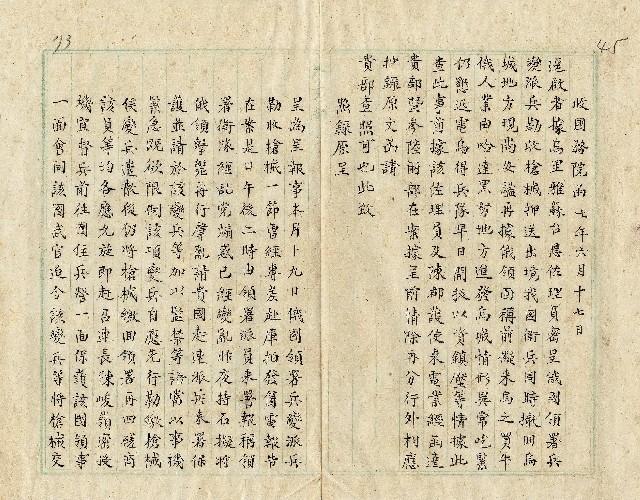 45
收國務院函七年六月十七日
逕啟者據烏里雅蘇台恩佐理員密呈俄國領署兵
變派兵勒收槍械押送出境我國衛兵同時撤回烏
城地方現尚安謐再據俄領面稱前擬來烏之買午
俄人業由哈達黑努地方進發烏城情形異常吃緊
仍懇迅電烏得兵隊早日開拔以資鎮懾等情據此
查此事前據該佐理員及陳都護使來電業經函達
貴部暨參陸兩部在案據呈前情除再分行外相應
抄錄原文函請
貴部查照可也此致
照錄原呈
93
呈為呈報事本月十九日俄國領署兵變派兵
勒收槍械一節曾經專差赴庫拍發萬電報告
在案是日午後二時由領署派員來署報稱領
署衛隊經亂党煽惑已經變亂非夜持石擬將
俄領擊斃再行聲亂請貴國赴速派兵來署保
護並請於該變兵等加以監禁等語當以事機
緊急現欲限制該項變兵自應先行勒繳槍械
俟慶兵遣散後仍將槍械繳回領署再四磋商
該員等均各應允旋即赴召連長陳峻嶺密授
機宜督兵前往圍住兵營一面保護該國領事
一面會同該國武官迫令該變兵等將槍械交